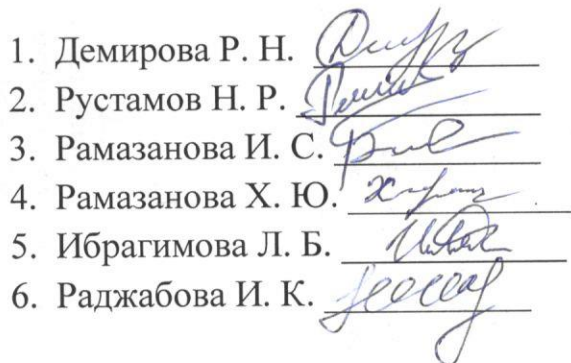 1. Демирова Р. Н.
2. Рустамов Н. Р.
3. Рамазанова И. С.
4. Рамазанова Х. Ю.
5. Ибрагимова Л. Б.
6. Раджабова И. К.